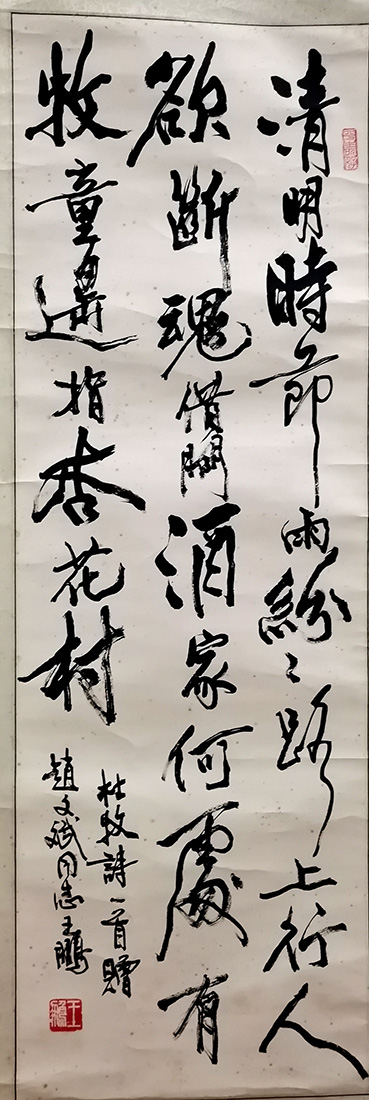 清明時節雨紛〻路上行人
欲斷魂借問酒家何處有
牧童邊指杏花村
杜牧詩一首贈
趙文斌同志王鵬